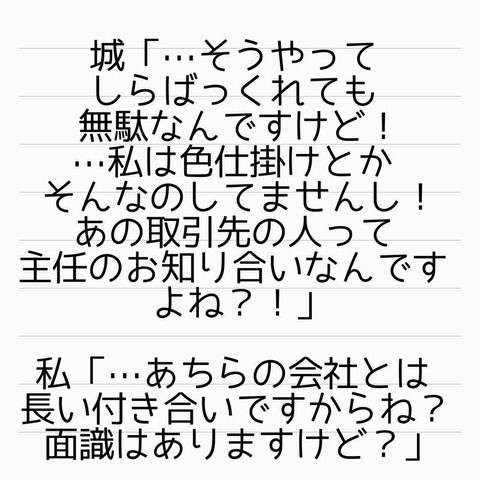 城「…そうやって
しらばっくれても
無駄なんですけど！
…私は色仕掛けとか
そんなのしてませんし！
あの取引先の人って
主任のお知り合いなんです
よね？！」
私「…あちらの会社とは
長い付き合いですからね？
面識はありますけど？」